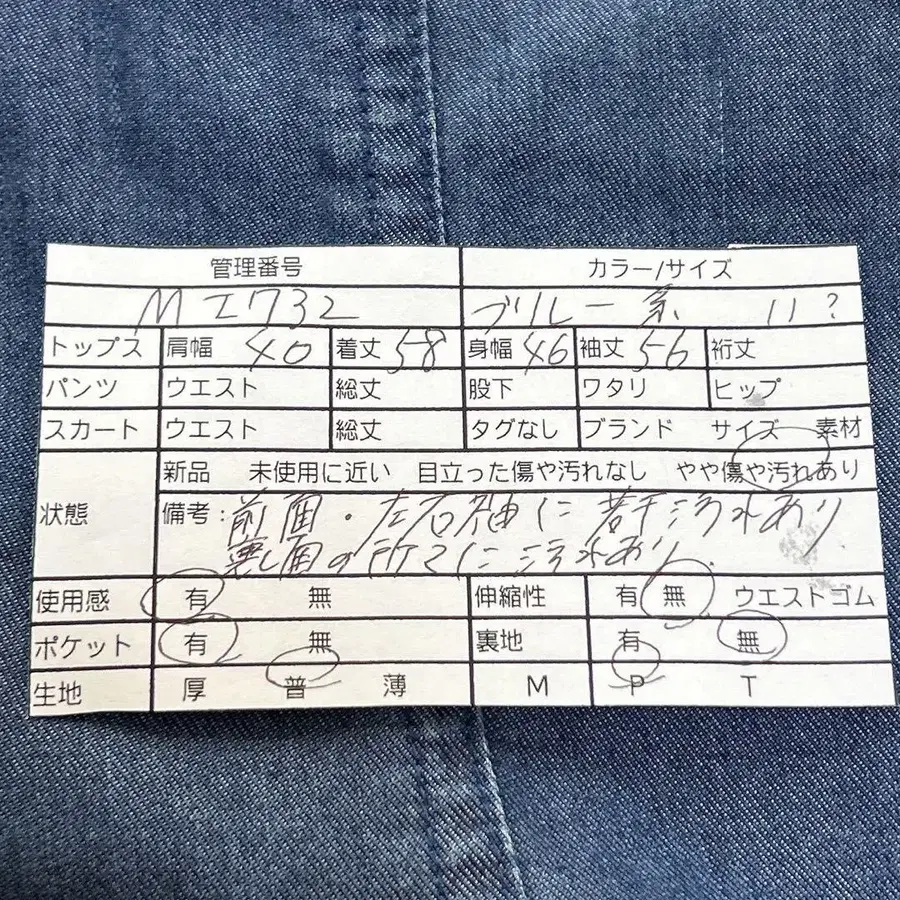 管理番号 カラー/サイズ
MI732 ブルー系 11?
トップス 肩幅 40 着丈 58 身幅 46 袖丈 56 裄丈
パンツ ウエスト 総丈 股下 ワタリ ヒップ
スカート ウエスト 総丈 タグなし ブランド サイズ 素材
状態 新品 未使用に近い 目立った傷や汚れなし やや傷や汚れあり
備考:前面・左右袖に若干汚れあり
裏面の所々に汚れあり
使用感 有 無 伸縮性 有 無 ウエストゴム
ポケット 有 無 裏地 有 無
生地 厚 普 薄 M P T